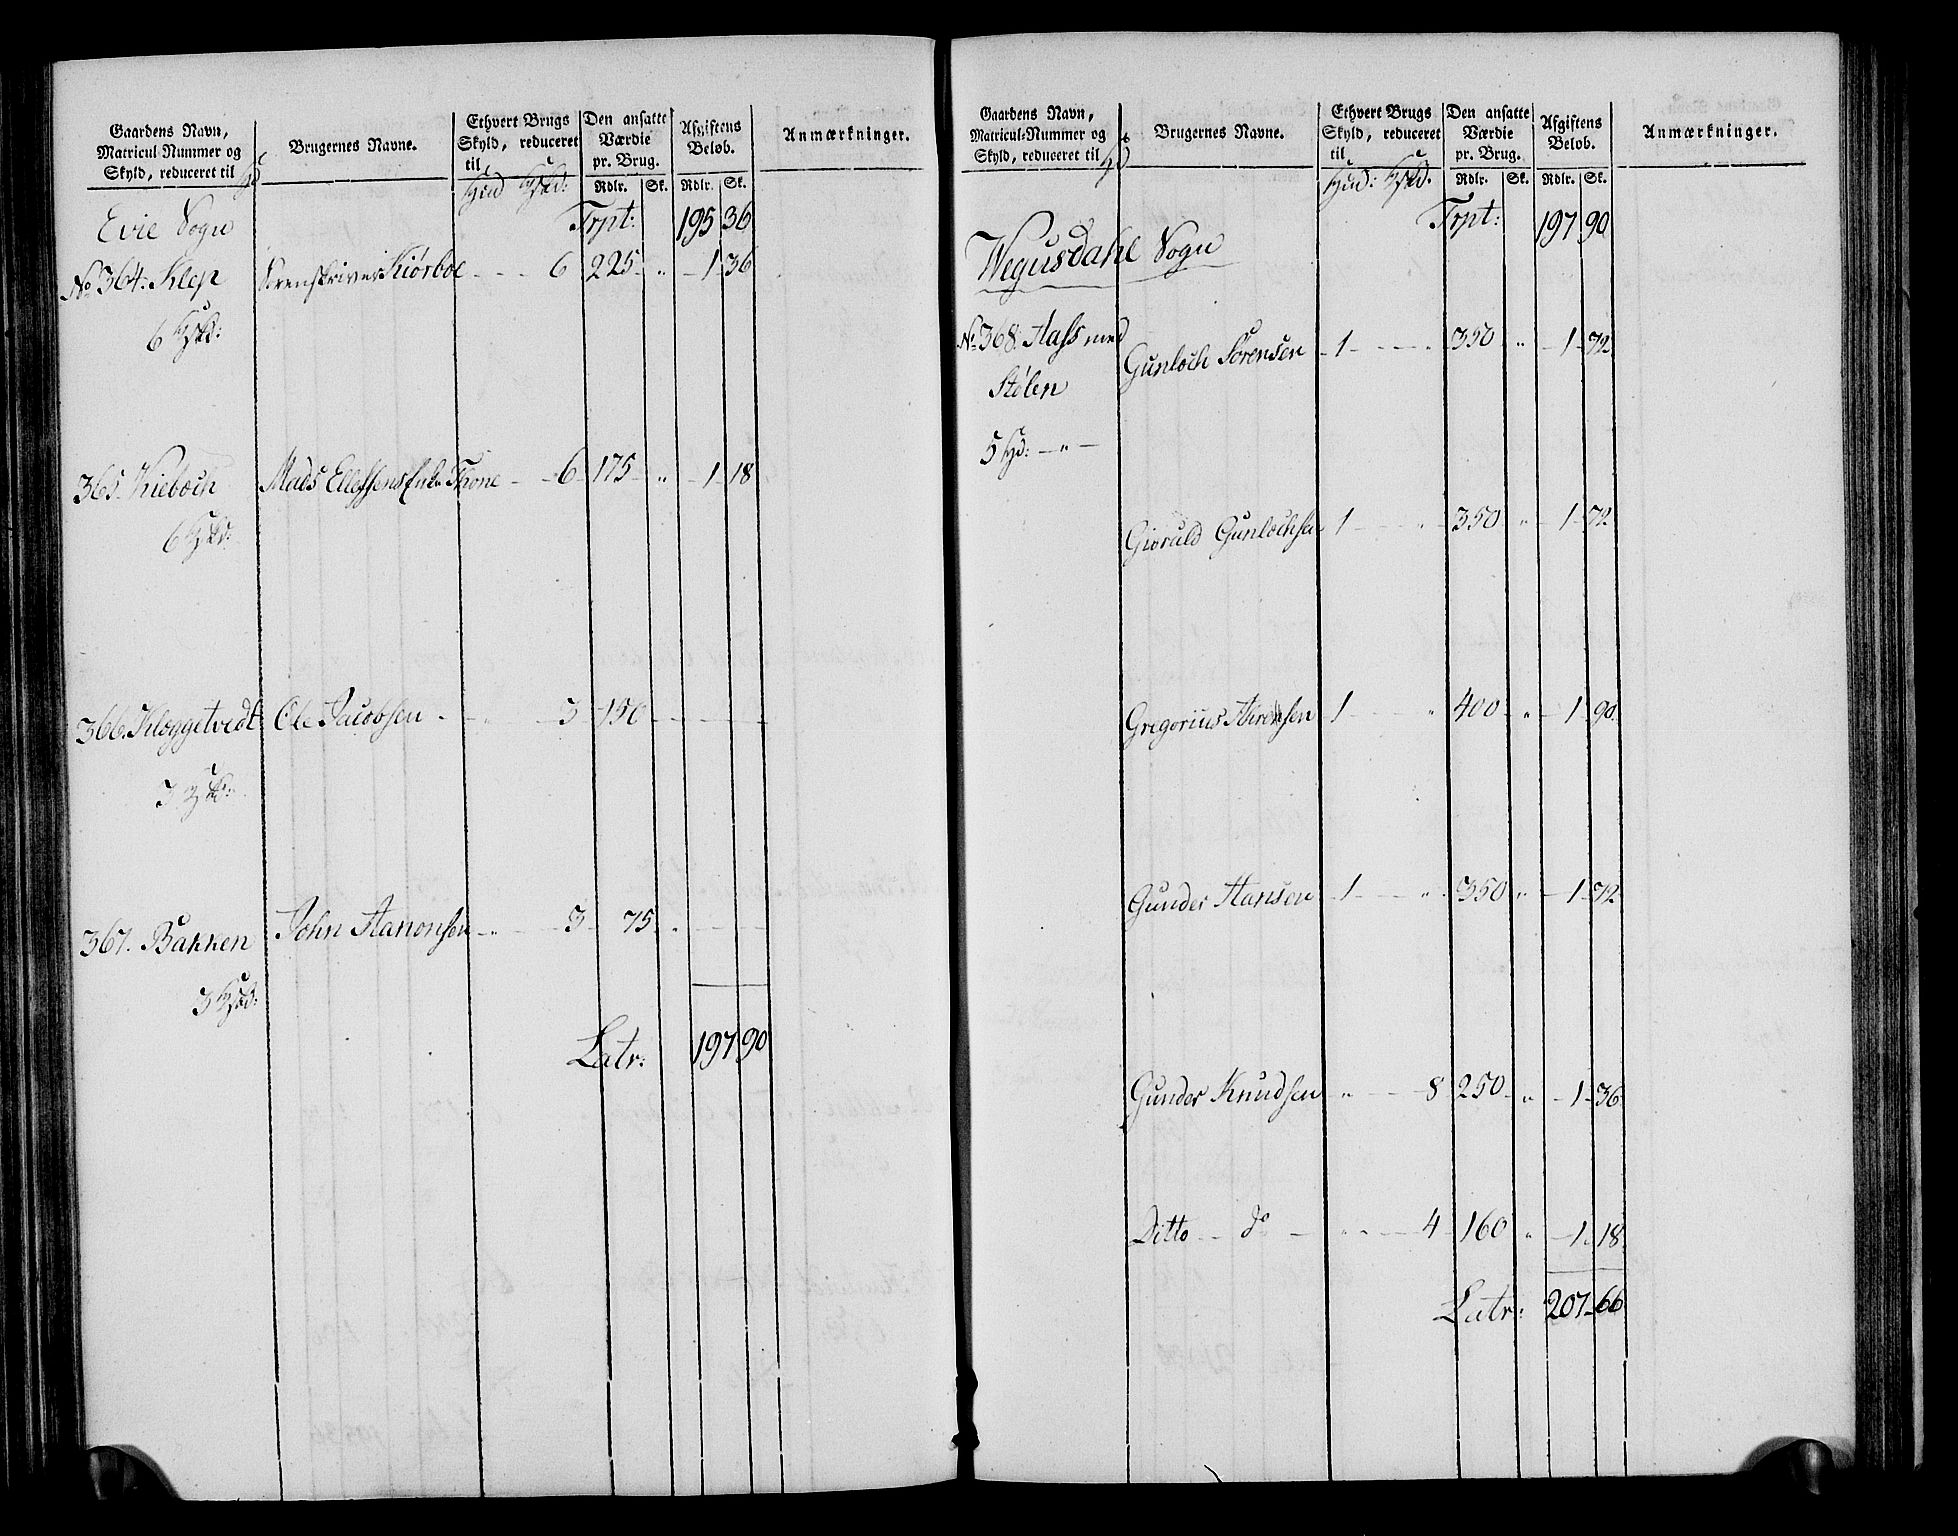 Gaardens Navn, Matricul-Nummer og Skyld, reduceret til
Brugernes Navne.
Ethvert Brugs Skyld, reduceret til
Hud Hskd:
Den ansatte Værdie pr. Brug.
Rdlr. Sk.
Afgiftens Beløb.
Rdlr. Sk.
Anmærkninger.
Evie Sogn Trpt: 195 36
No 364: Klep Sorenskriver Kiørboe - - - 6 225 " - 1 - 36
6 Hskd:
365 Kieboch Mads Ellefsens Enke Thone - - 6 - 175 - " - 1 - 18
6 Hskd:
366. Kloggetvedt Ole Jacobsen - - " - - 3 - 150 - - - -
3 Hskd:
367. Bakken John Aanonsen - " - - 3 - 75 " - - -
3 Hskd:
Latr: 197 90
Gaardens Navn, Matricul-Nummer og Skyld, reduceret til
Brugernes Navne.
Ethvert Brugs Skyld, reduceret til
Hud: Hskd.
Den ansatte Værdie pr. Brug.
Rdlr. Sk.
Afgiftens Beløb.
Rdlr. Sk.
Anmærkninger.
Trpt: 197 90
Wegusdahl Sogn
No 368: Hafs med Gunloch Sørensen - 1 - - - " 350 - " - 1 - 72
Stølen
5 Hd: - " -
Giøruld Gunlochsen 1 - - - " - 350 " - 1 - 72
Gregorius 1 - - - " - 400 - " - 1 - 90
Gunder Hansen - 1 - - - " - 350 " - 1 - 72
Gunder Knudsen " - - - 8 250 - " - 1 - 36
Ditto - - do - " - - - 4 160 " - 1 - 18
Latr: 207 66